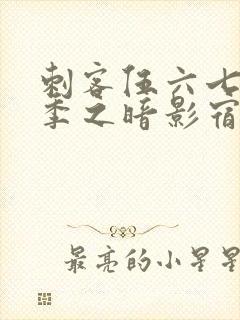 刺客伍六七
季之暗影宿
最亮的小星星